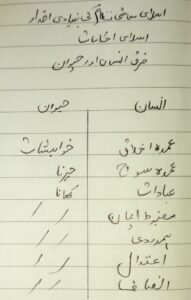 اسلامی معاشی نظام کی بنیادی اقدار
اسلامی احکامات
فرق انسان اور حیوان
انسان حیوان
عمدہ اخلاق خواہشات
عمدہ سوچ چرنا
عبادات کھانا
مضبوط ایمان / /
ہمدردی / /
اعتدال / /
انصاف / /